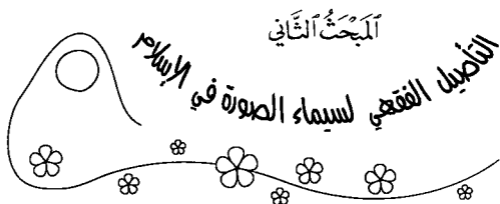 ٱلمَبْحَثُ ٱلثَّانِي
التأصيل الفقهي لسيماء الصورة في الإسلام